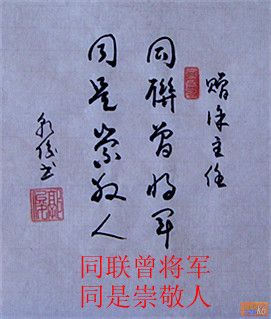 赠徐主任
同联曾将军
同是崇敬人
同联曾将军
同是崇敬人